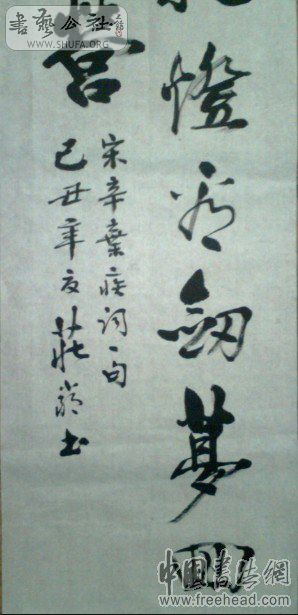 燈看劍夢回
營
宋辛棄疾詞一句
己丑年夏莊书
書藝公社
WWW.SHUFA.ORG
中國書法網
www.freehead.com